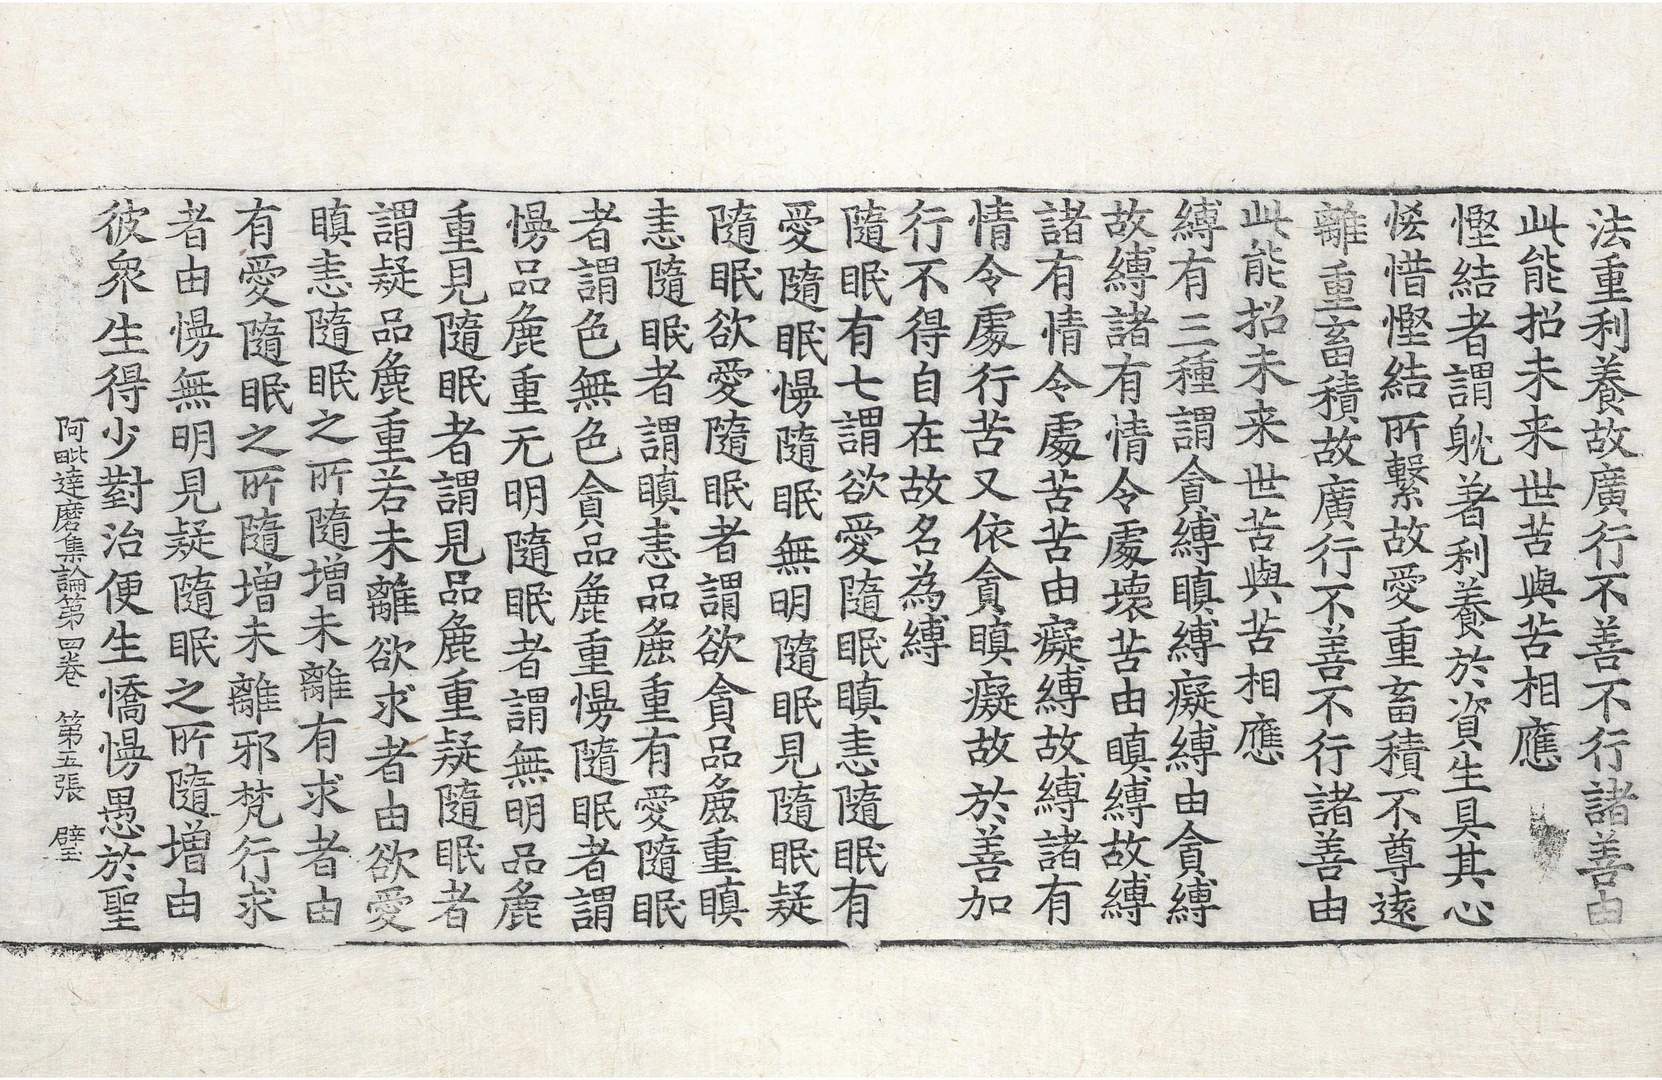 法重利養故廣行不善不行諸善由
此能招未来世苦與苦相應
慳結者謂躭著利養於資生具其心
恡惜慳結所繫故愛重畜積不尊遠
離重畜積故廣行不善不行諸善由
此能招未来世苦與苦相應
縛有三種謂貪縛瞋縛癡縛由貪縛
故縛諸有情令處壞苦由瞋縛故縛
諸有情令處苦苦由癡縛故縛諸有
情令處行苦又依貪瞋癡故於善加
行不得自在故名為縛
隨眠有七謂欲愛隨眠瞋恚隨眠有
愛隨眠慢隨眠無明隨眠見隨眠疑
隨眠欲愛隨眠者謂欲貪品麁重瞋
恚隨眠者謂瞋恚品麁重有愛隨眠
者謂色無色貪品麁重慢隨眠者謂
慢品麁重无明隨眠者謂無明品麁
重見隨眠者謂見品麁重疑隨眠者
謂疑品麁重若未離欲求者由欲愛
瞋恚隨眠之所隨增未離有求者由
有愛隨眠之所隨增未離邪梵行求
者由慢無明見疑隨眠之所隨增由
彼衆生得少對治便生憍慢愚於聖
阿毗達磨集論第四卷 第五張 璧